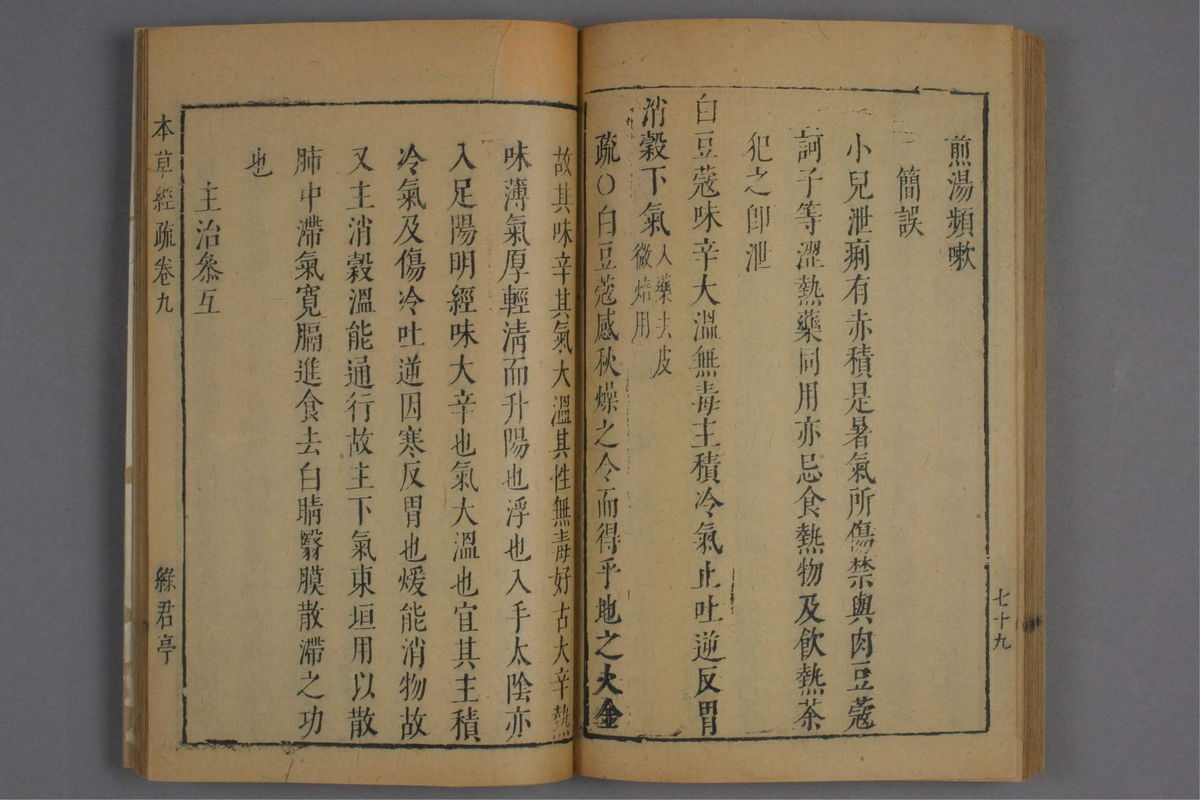 煎湯頻嗽
簡誤
小兒泄痢有赤積是暑氣所傷禁與肉豆蔻
訶子等澀熱藥同用亦忌食熱物及飲熱茶
犯之卽泄
白豆蔻味辛大溫無毒主積冷氣止吐逆反胃
消穀下氣入藥去皮微焙用
疏〇白豆蔻感秋燥之令而得乎地之火金
七十九
故其味辛其氣大溫其性無毒好古大辛熱
味薄氣厚輕清而升陽也浮也入手太陰亦
入足陽明經味大辛也氣大溫也宜其主積
冷氣及傷冷吐逆因寒反胃也煖能消物故
又主消穀溫能通行故主下氣東垣用以散
肺中滯氣寬膈進食去白睛翳膜散滯之功
也
主治叅互
本草經疏卷九
綠君亭